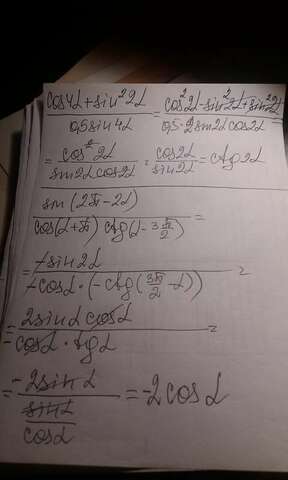 (cos4α + sin²2α)/(0,5 sin4α) = (cos²2α - sin²2α + sin²2α)/(0,5·2 sin2α cos2α)
= cos²2α/(sin2α cos2α) = cos2α/sin2α = ctg2α
sin(2π-2α)/(cos(α+π) ctg(α-3π/2)) =
= -sin2α/(-cosα·(-ctg(3π/2-α))) =
= 2sinα cosα/(-cosα·tgα) =
= -2sinα/(sinα/cosα) = -2cosα